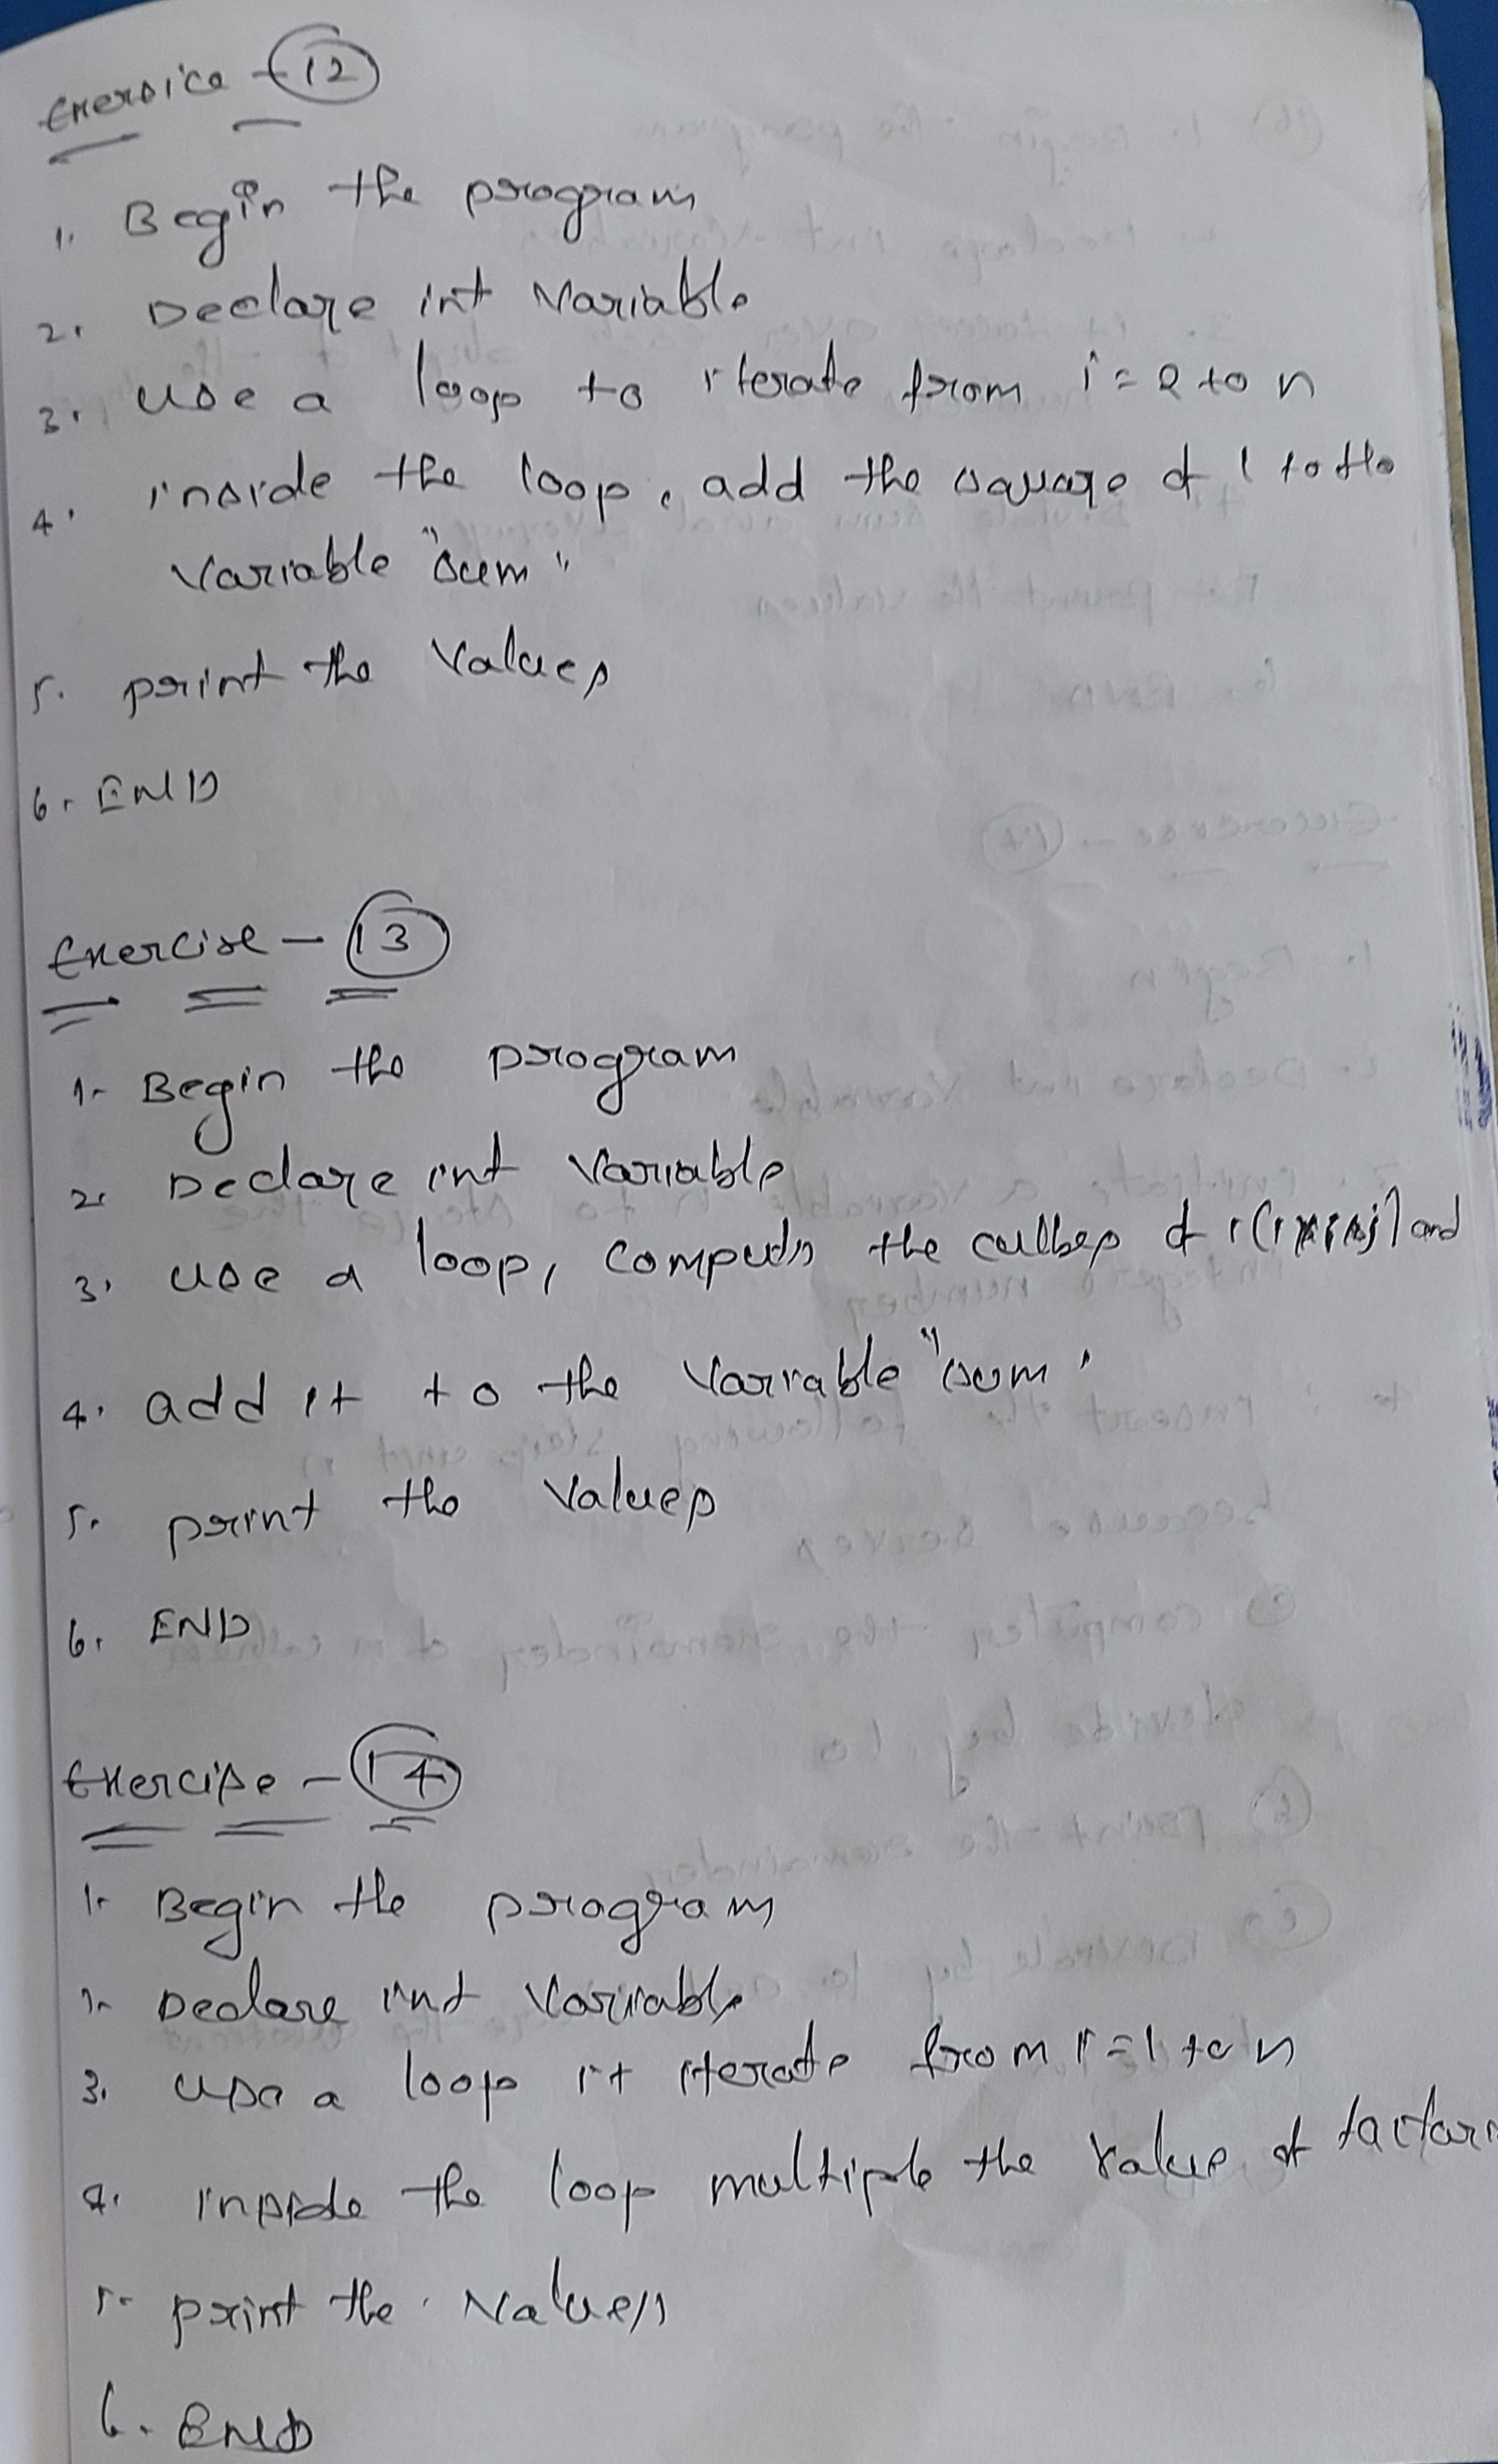 Exersice - 12
1. Begin the program
2. Declare int Variable
3. use a loop to iterate from i = 2 to n
4. inside the loop, add the square of i to the
Variable "sum"
5. print the Values
6. END
Exercise - 13
1. Begin the program
2. Declare int Variable
3. use a loop, computs the cubes of i (i*i*i) and
4. add it to the Variable "sum"
5. print the Values
6. END
Exercise - 14
1. Begin the program
2. Declare int Variable
3. use a loop it iterate from i = 1 to n
4. inside the loop multiple the value of factori
5. print the Values
6. END